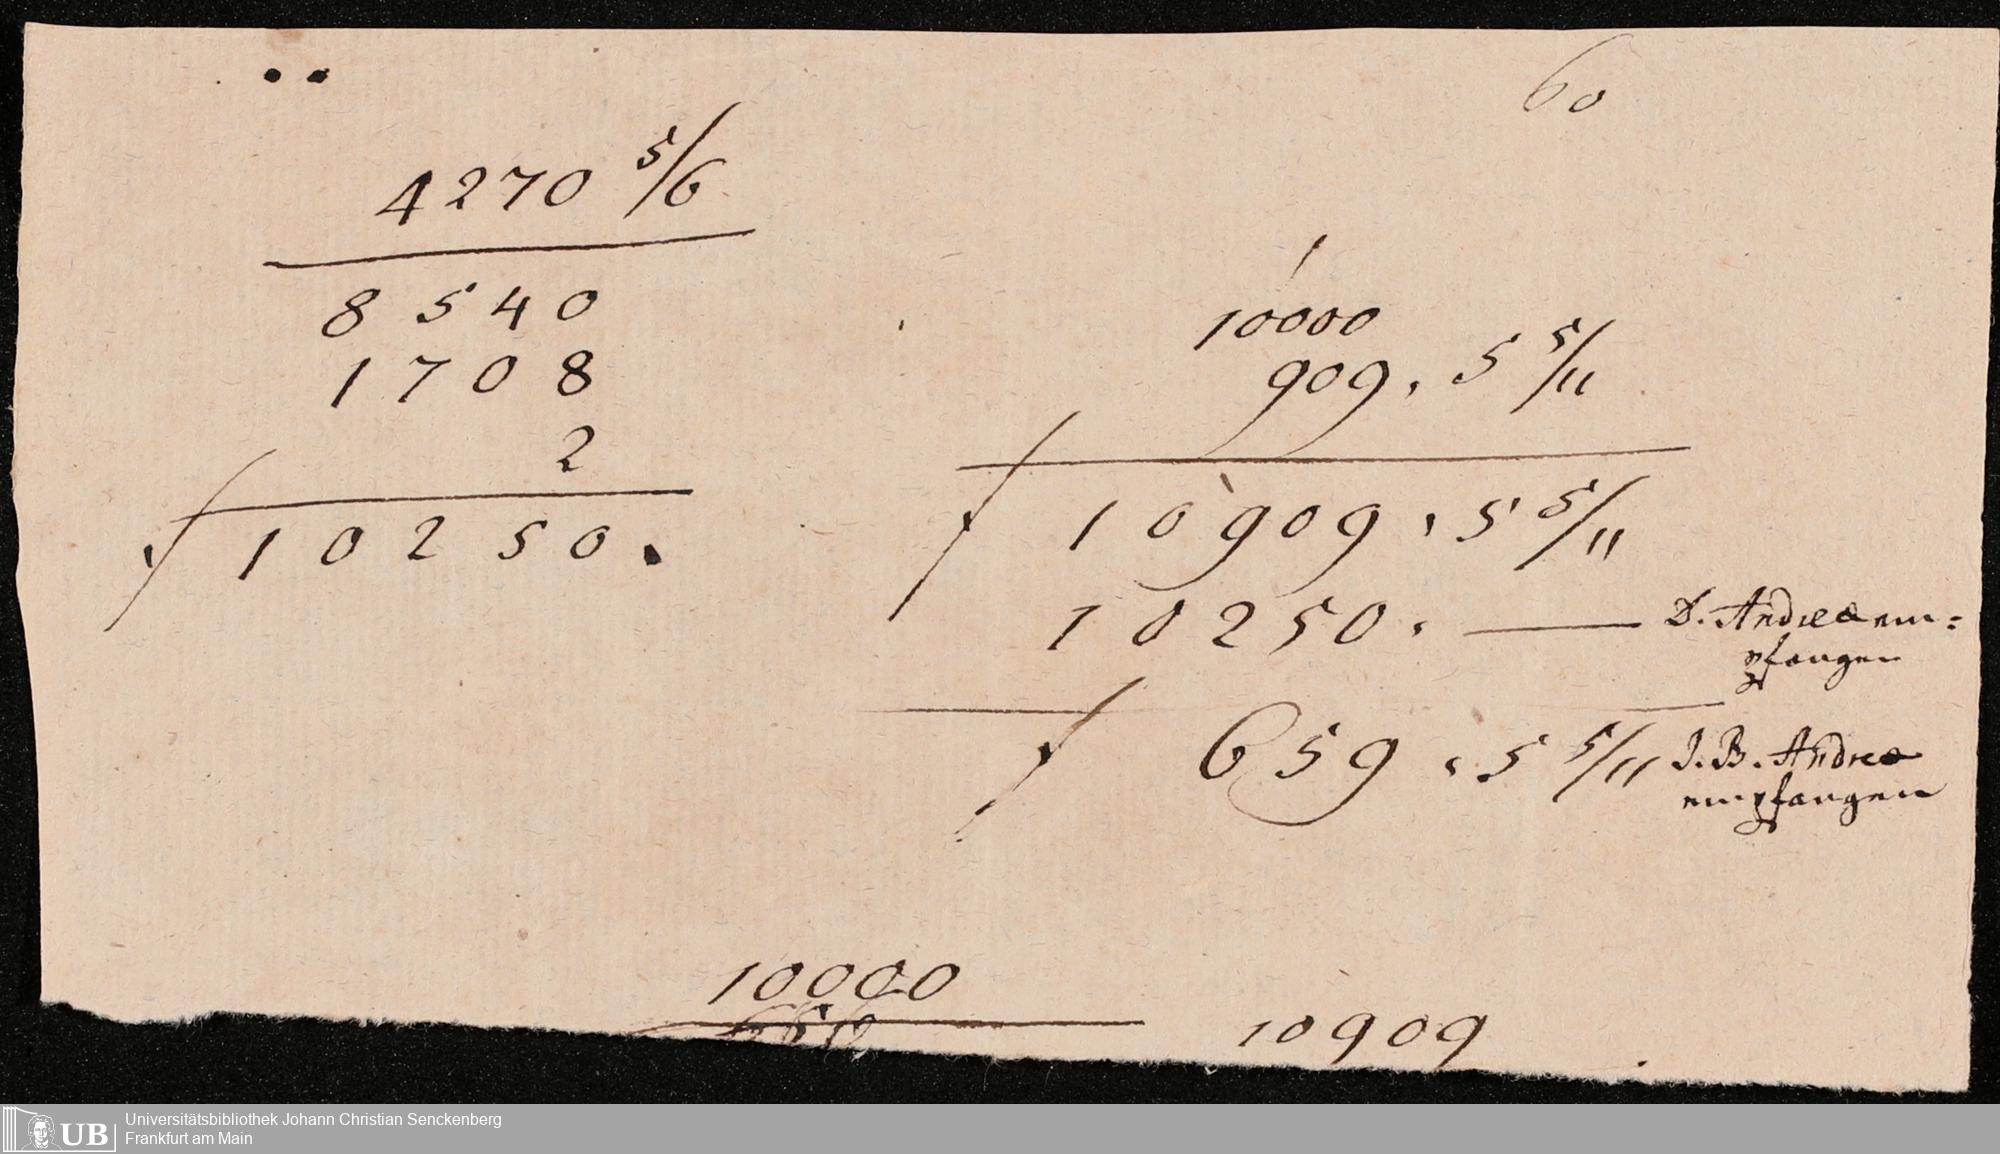 60
4270 5/6
8540
1708
2
f 10250.
1
10000
909. 5 5/11
f 10909. 5 5/11
10250. — D. Andreae em=
pfangen
f 659. 5 5/11 J. B. Andreae
empfangen
10000
10909
Universitätsbibliothek Johann Christian Senckenberg
Frankfurt am Main
UB